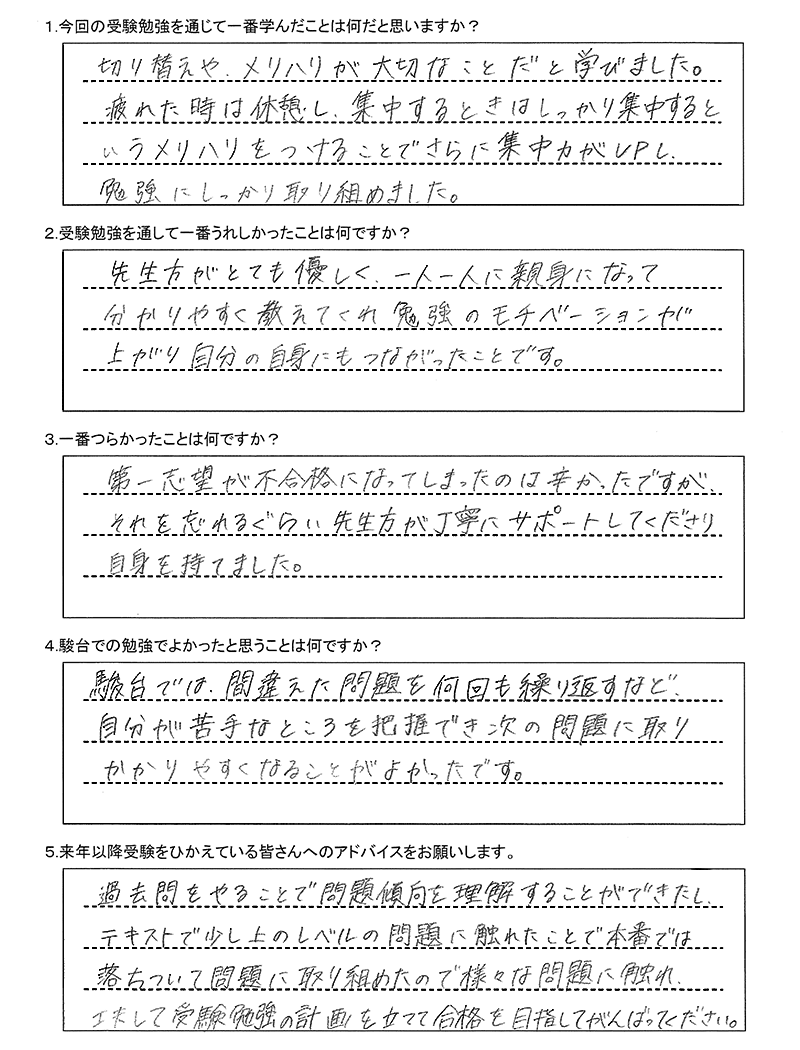 1.今回の受験勉強を通じて一番学んだことは何だと思いますか？
切り替えや、メリハリが大切なことだと学びました。
疲れた時は休憩し、集中するときはしっかり集中すると
いうメリハリをつけることでさらに集中力がUPし、
勉強にしっかり取り組めました。
2.受験勉強を通して一番うれしかったことは何ですか？
先生方がとても優しく、一人一人に親身になって
分かりやすく教えてくれ勉強のモチベーションが
上がり自分の自身にもつながったことです。
3.一番つらかったことは何ですか？
第一志望が不合格になってしまったのは辛かったですが、
それを忘れるぐらい先生方が丁寧にサポートしてくださり
自身を持てました。
4.駿台での勉強でよかったと思うことは何ですか？
駿台では、間違えた問題を何回も繰り返すなど、
自分が苦手なところを把握でき次の問題に取り
かかりやすくなることがよかったです。
5.来年以降受験をひかえている皆さんへのアドバイスをお願いします。
過去問をやることで問題傾向を理解することができたし、
テキストで少し上のレベルの問題に触れたことで本番では
落ちついて問題に取り組めたので様々な問題に触れ、
工夫して受験勉強の計画を立てて合格を目指してがんばってください。